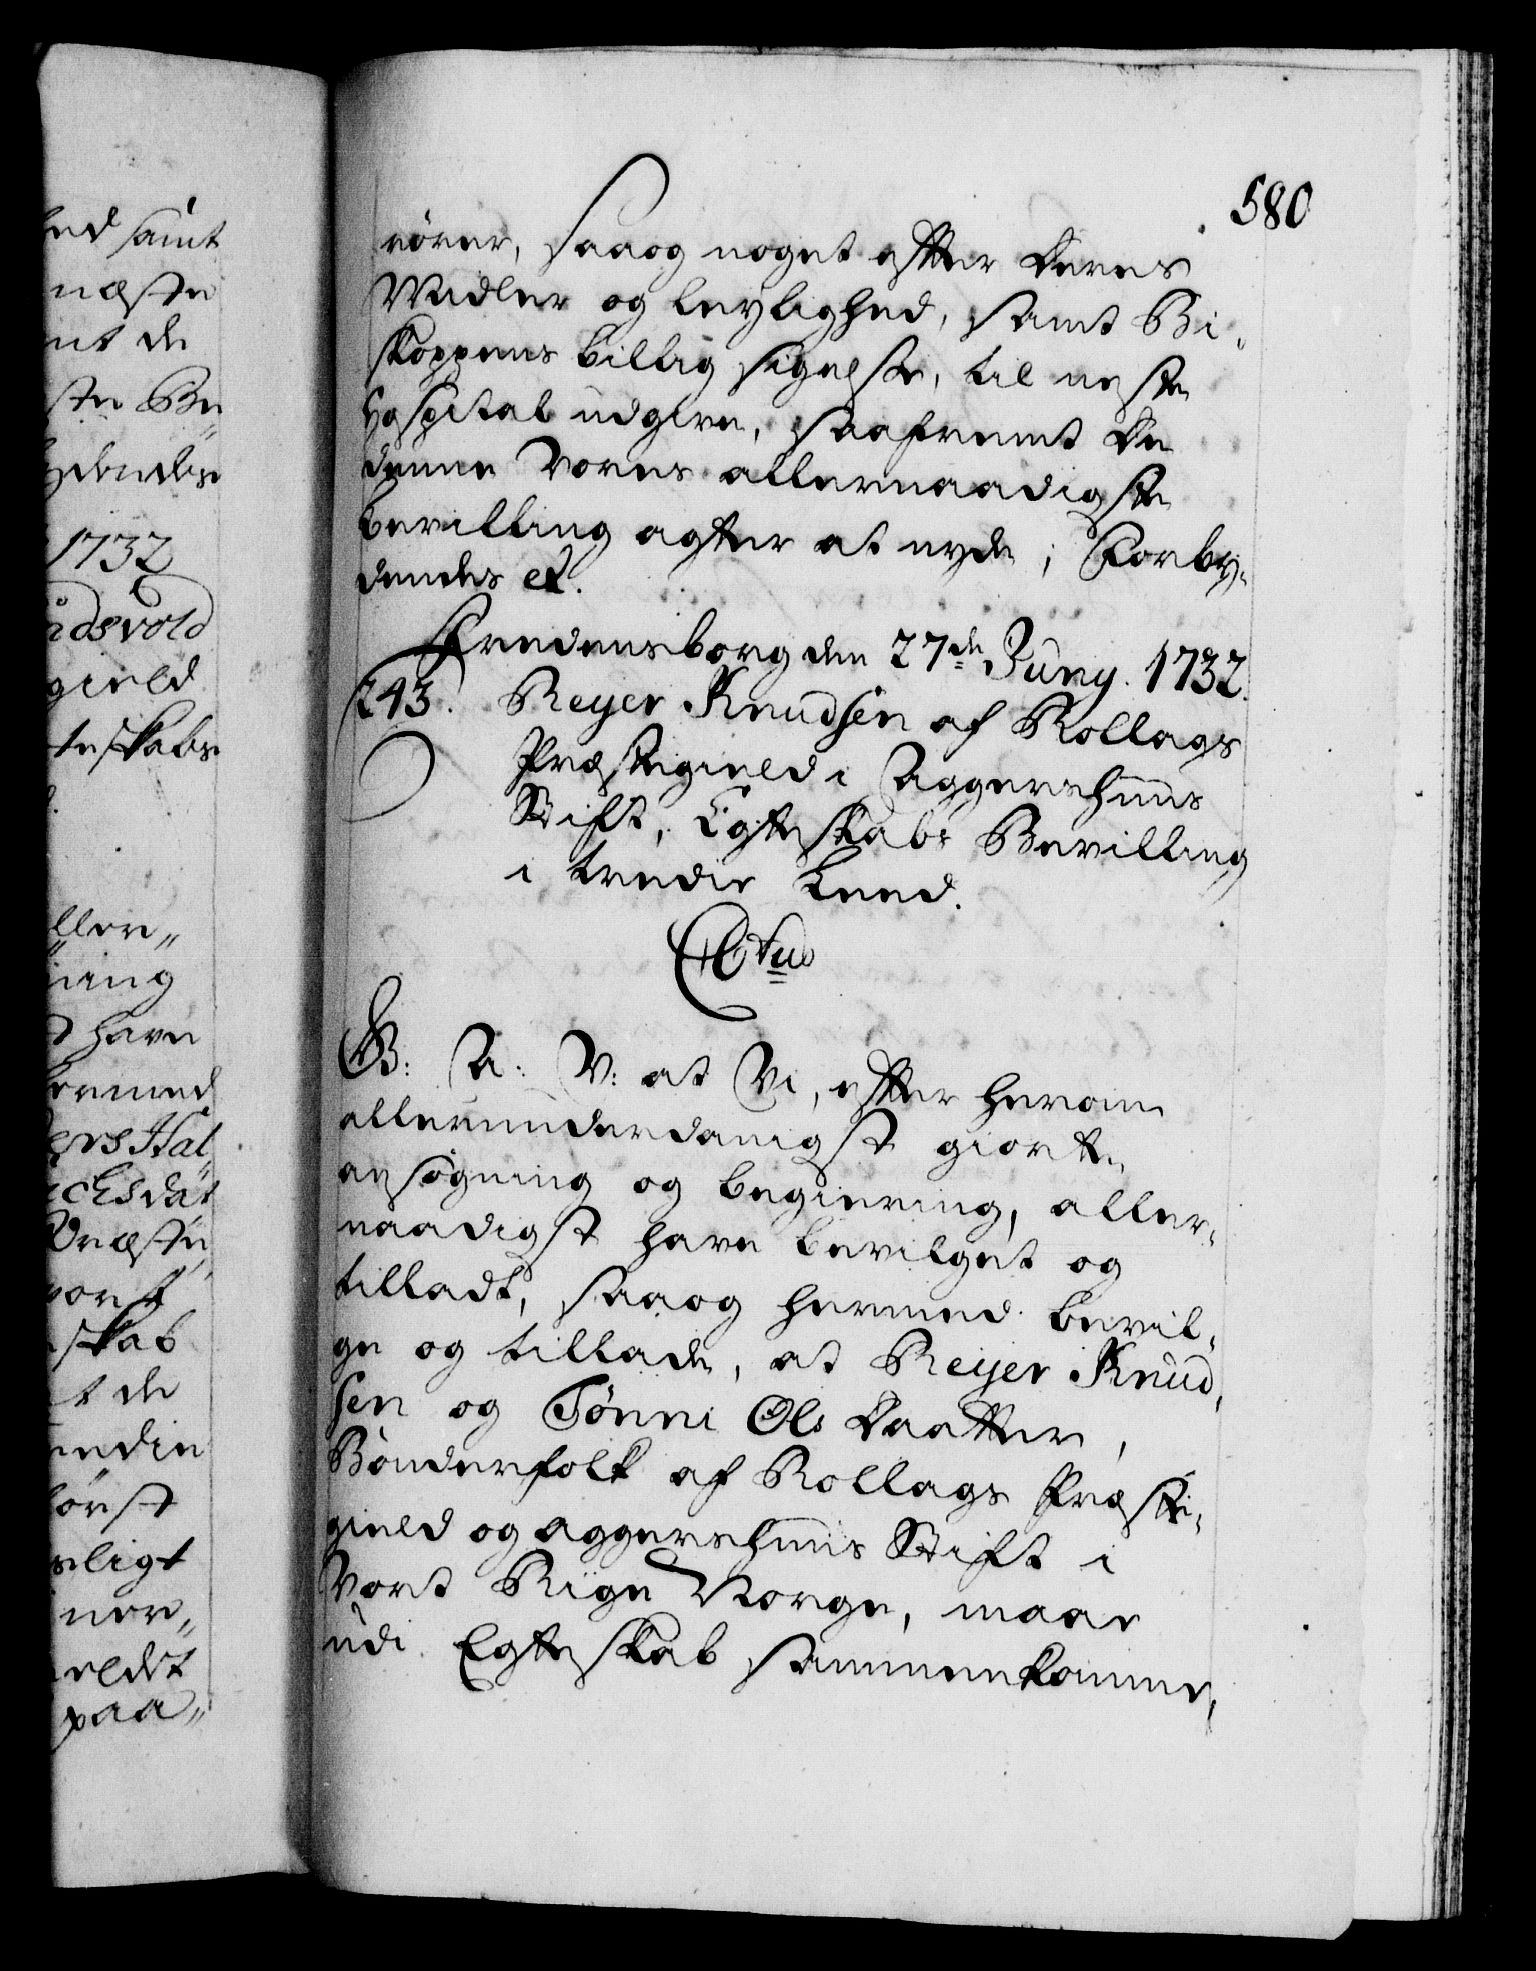 580
rörer, saaog noget efter deres
Midler og leylighed, samt Bi-
skoppens billig sigelse, til neste
Hospital udgive, saafremt de
denne Vores allernaadigste
bevilling agter at nyde; Forby-
dendes etc.
Fredensborg den 27de Juny. 1732.
243. Reyer Knudsen af Rollags
Præstegield i Aggershuus
Stift, Egteskabs Bevilling
i tredie Leed.
C5tus
G: A: V: at Vi, efter herom
allerunderdanigst giorte
ansøgning og begiering, aller-
naadigst have bevilget og
tilladt, saaog hermed bevil-
ge og tillade, at Reyer Knud-
sen og Tönni Ols Daatter,
Bönderfolk af Rollags Præste-
gield og Aggershuus Stift i
Vort Rige Norge, maae
udi Egteskab sammenkomme,
ed samt
næste
nt de
ste Be
ydendes
1732
idsvold
gield
teskabs
ller-
ning
t have
ermed
ers Hal
ichelsdat
Præste
vort
skab
t de
redie
först
sligt
ner-
eldet
paa-